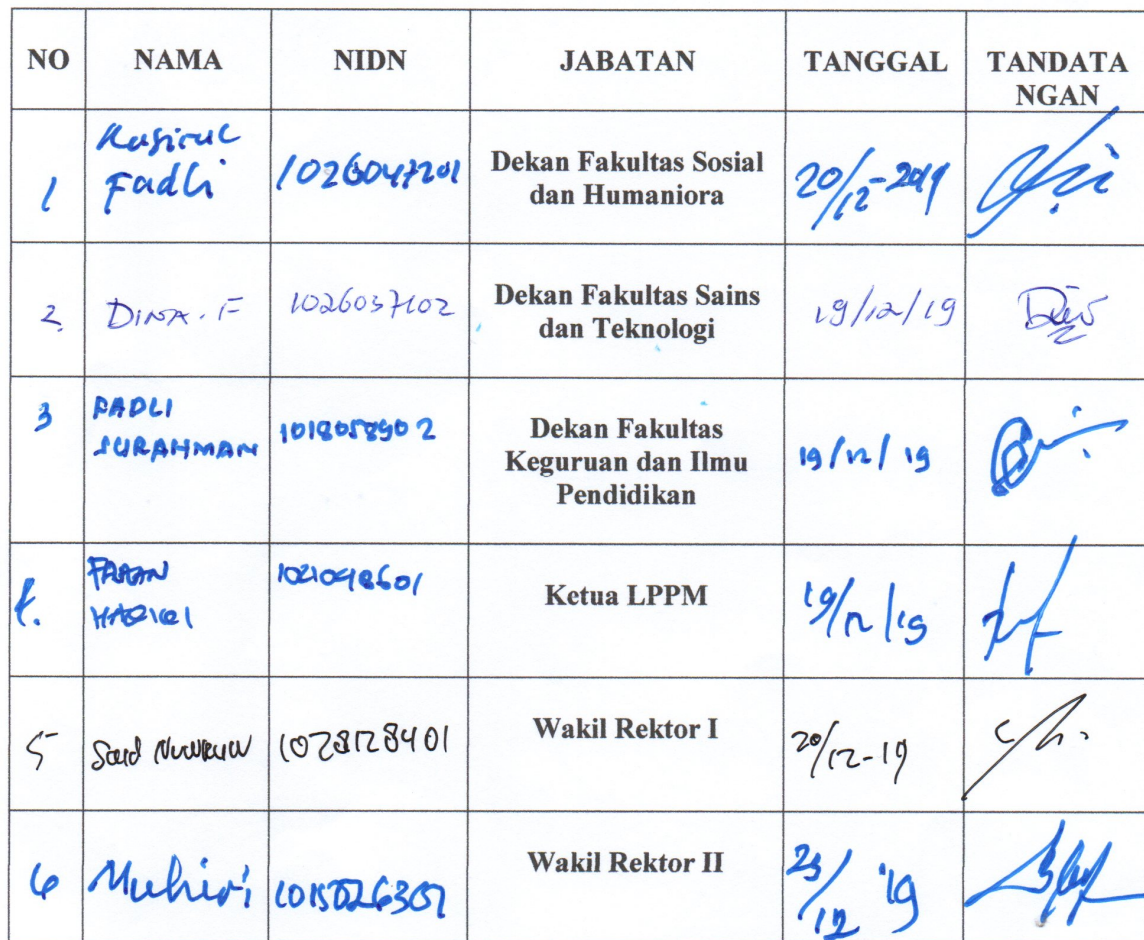 NO NAMA NIDN JABATAN TANGGAL TANDATA
NGAN
1 Fadli 1026047201 Dekan Fakultas Sosial
dan Humaniora 20/12-2019
2. DINA. F 1026037102 Dekan Fakultas Sains
dan Teknologi 19/12/19
3 FADLI
SURAHMAN 1018058902 Dekan Fakultas
Keguruan dan Ilmu
Pendidikan 19/12/19
4. Ketua LPPM 19/12/19
5 Said 1028128401 Wakil Rektor I 20/12-19
6 Wakil Rektor II 23/12 '19